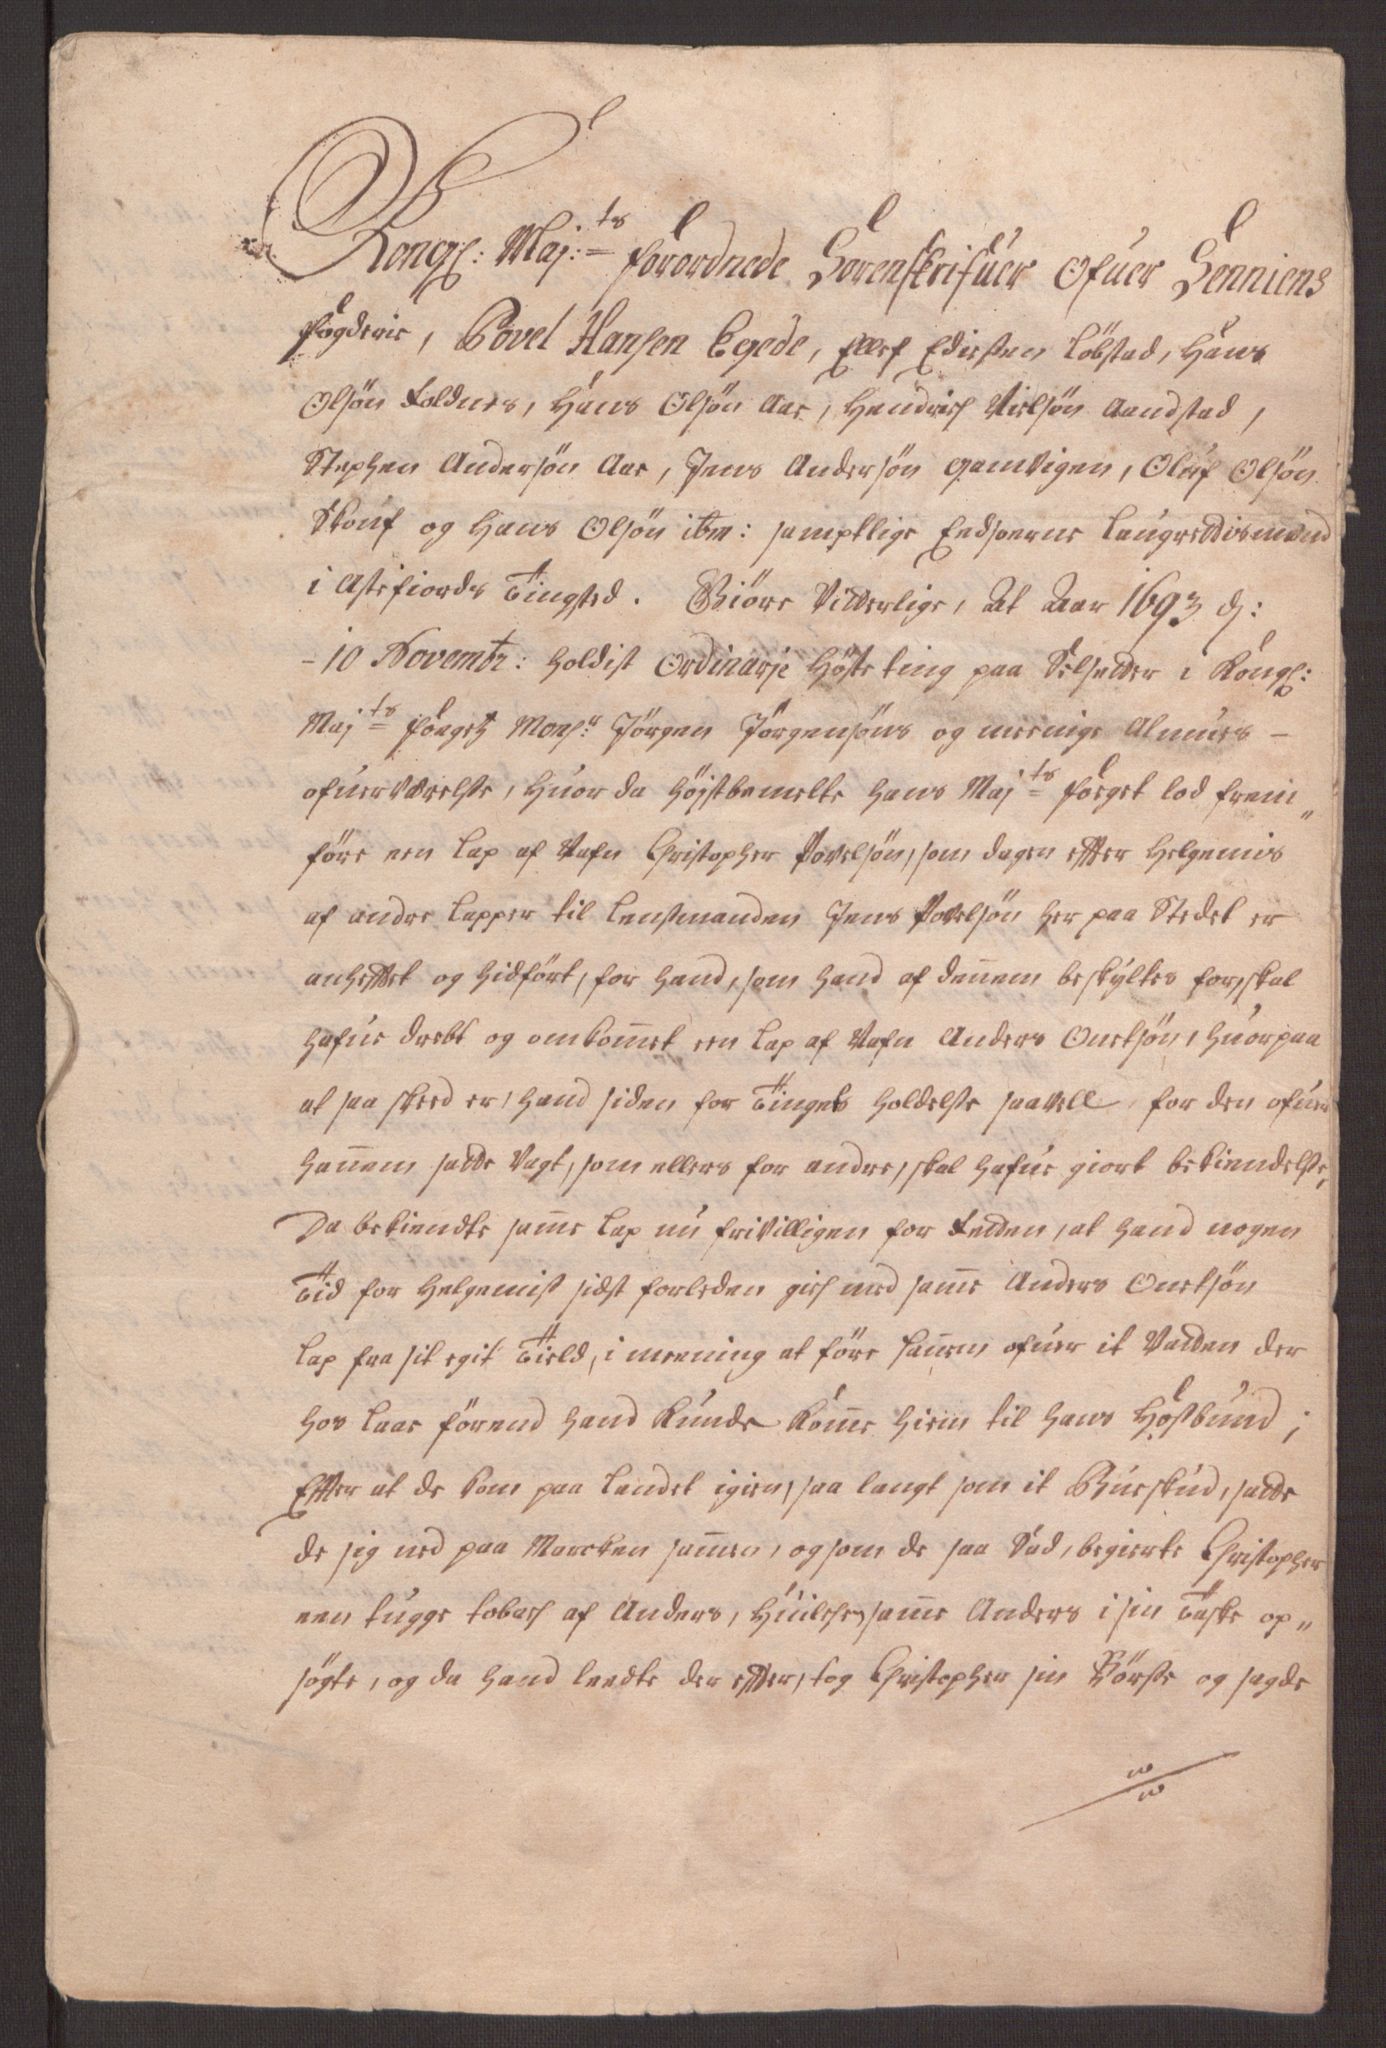 Kongl: Maj:ts forordnede Sorenskrifuer Ofuer Senniens
fögderie, Povel Hansen Egede, Ellef Edissen Löbstad, Hans
Olsön Foldnes, Hans Olsön Aae, Hendrich Nielsön Aandstad,
Stephen Andersön Aae, Jens Andersön gamvigen, Oluf Olsön
Skouf og Hans Olsön ibm: samptlige Eedsoerne Laugrettismænd
i Astefiords Tingsted. Giöre Vitterlige, At Aar 1693 d:
-10 Novembr: holdist Ordinarje Höste ting paa Selsetter i Kongl:
Maj:ts fougetz Monsr: Jörgen Jörgensöns og meenige Almues-
ofuerværelse, huor da höjstbemelte hans Maj:ts foeget lod frem„
före een Lap af Nafn Christopher Povelsön, som dagen efter Helgemis
af andre Lapper til Lensmanden Jens Povelsön her paa Stedet er
anhefftet og hidfört, for hand, som hand af dennem beskyltes for, skal
hafue drebt og omkommet een Lap af Nafn Anders Onetsön, huorpaa
at saa skeed er, hand siden for Tingets holdelse saavell for den ofuer
hannem satte Vagt, som ellers for andre, skal hafue giort bekiendelse,
Da bekiendte samme Lap nu frivilligen for Retten, at hand nogen
Tid for Helgemiss sidst forleden gich med samme Anders Onetsön
Lap fra sit egit Field, i meening at före hannem ofuer it Vatten der
hos laae förend hand kunde komme hiem til hans höstbund;
Effter at de kom paa Landet igien, saa langt som it Bueskud, satte
de sig ned paa Marcken sammen, og som de saa sad, begierte Christopher
een tugge tobach af Anders, huilchen samme Anders i sin Taske op„
sögte, og da hand leedte der efter, tog Christopher sin Börse og sagde